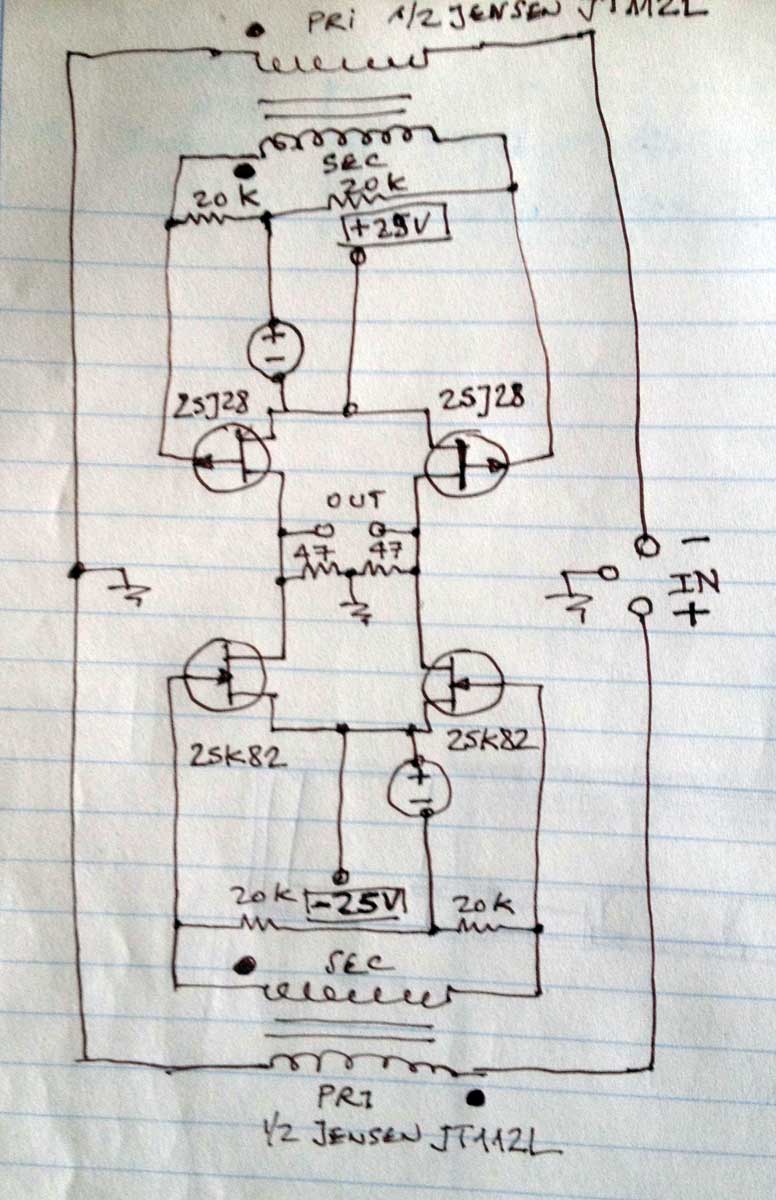 PRI 1/2 JENSEN
SEC
20K
20K
+25V
+
-
2SJ28
2SJ28
OUT
47
47
-
IN
+
2SK82
2SK82
+
-
20K
-25V
20K
SEC
PRI
1/2 JENSEN JT112L